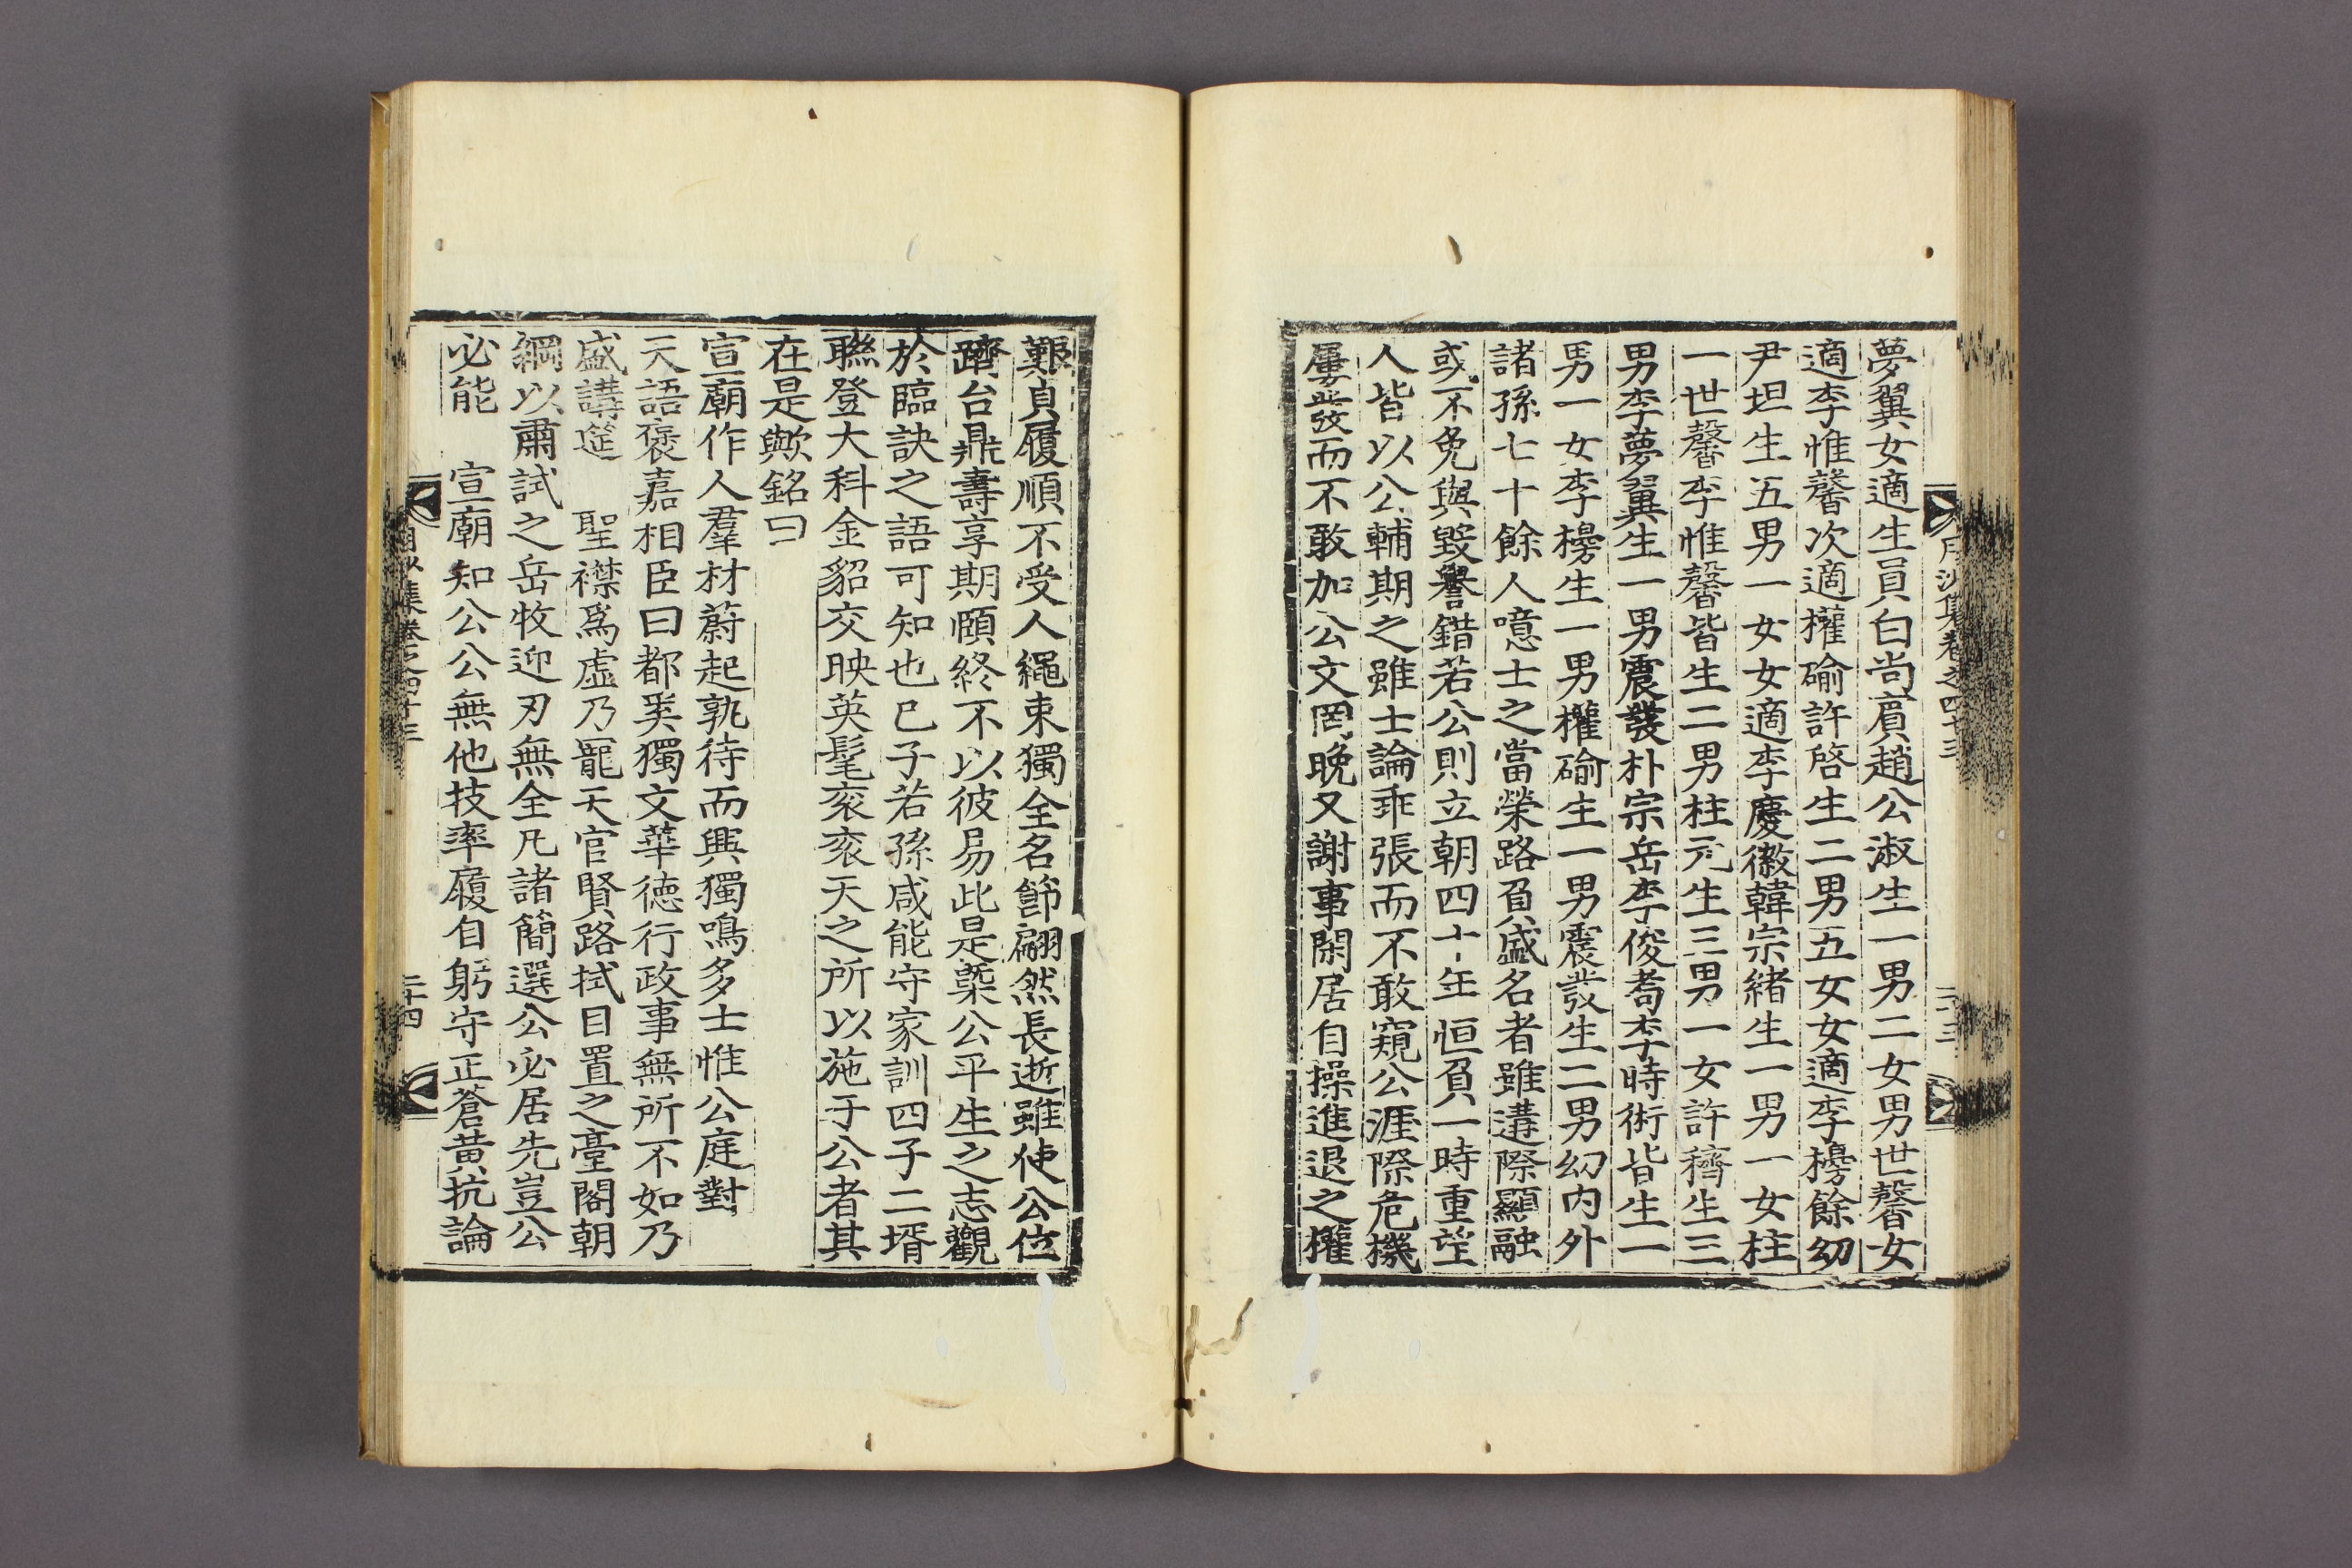 月沙集卷之四十三
二十三
夢翼女適生員白尚賔趙公淑生一男二女男世馨女
適李惟馨次適權碖許啓生二男五女女適李㯙餘幼
尹坦生五男一女女適李慶徽韓宗緒生一男一女柱
一世馨李惟馨皆生二男柱元生三男一女許穧生三
男李夢翼生一男震發朴宗岳李俊耈李時術皆生一
男一女李㯙生一男權碖生一男震發生二男幼內外
諸孫七十餘人噫士之當榮路負盛名者雖遘際顯融
或不免與毀譽錯若公則立朝四十年恒負一時重望
人皆以公輔期之雖士論乖張而不敢窺公涯際危機
屢發而不敢加公文罔晚又謝事閑居自操進退之權
艱貞履順不受人繩束獨全名節翩然長逝雖使公位
躋台鼎壽享期頤終不以彼易此是槩公平生之志觀
於臨訣之語可知也已子若孫咸能守家訓四子二壻
聯登大科金貂交映英髦衮衮天之所以施于公者其
在是歟銘曰
宣廟作人羣材蔚起孰待而興獨鳴多士惟公庭對
天語褒嘉相臣曰都奚獨文華德行政事無所不如乃
盛講筵　聖襟爲虛乃寵天官賢路拭目置之臺閣朝
綱以肅試之岳牧迎刃無全凡諸簡選公必居先豈公
必能　宣廟知公公無他技率履自躬守正蒼黃抗論
月沙集卷之四十三
二十四